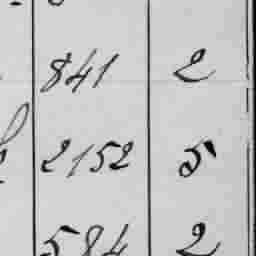 841 2
2152 5
584 2